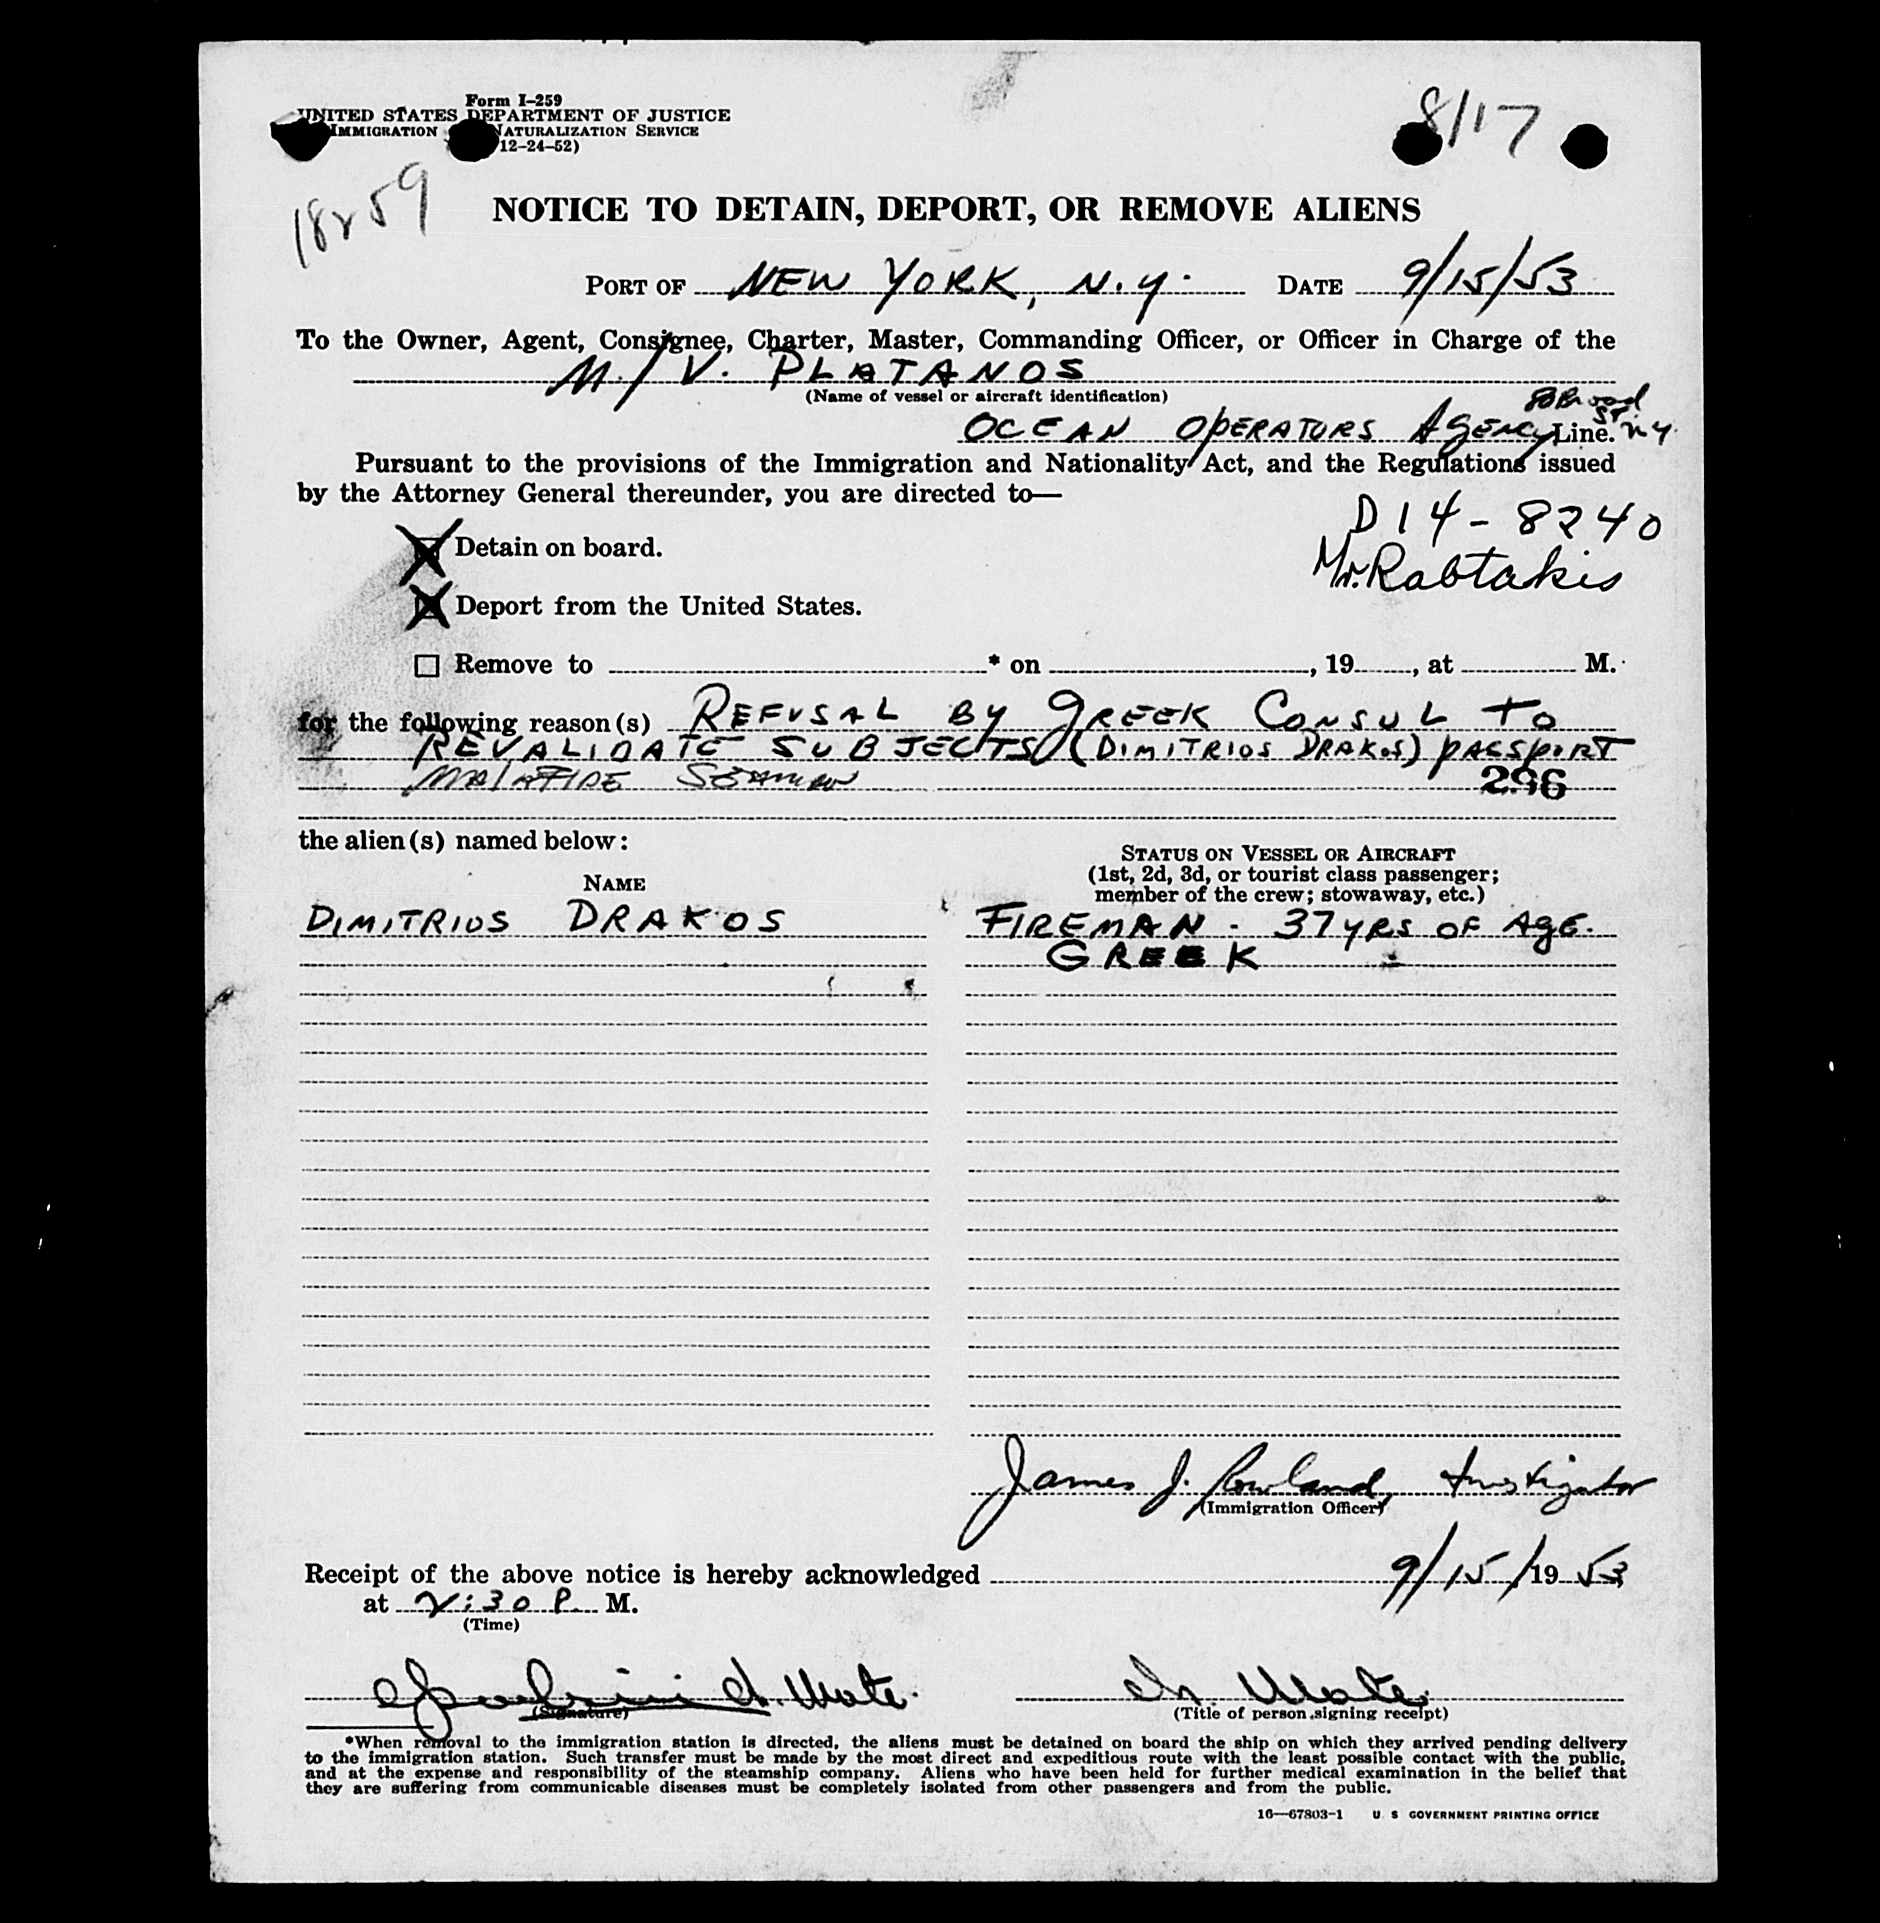 Form I-259
UNITED STATES DEPARTMENT OF JUSTICE
IMMIGRATION NATURALIZATION SERVICE
12-24-52)
8/17
18259
NOTICE TO DETAIN, DEPORT, OR REMOVE ALIENS
PORT OF NEW YORK, N.Y. DATE 9/15/53
To the Owner, Agent, Consignee, Charter, Master, Commanding Officer, or Officer in Charge of the
M./V. PLATANOS
(Name of vessel or aircraft identification)
80 Broad
St.
OCEAN OPERATORS AGENCY Line. N.Y.
Pursuant to the provisions of the Immigration and Nationality Act, and the Regulations issued
by the Attorney General thereunder, you are directed to—
DI4-8240
Detain on board.
Mr. Rabtakis
Deport from the United States.
Remove to * on , 19 , at M.
for the following reason(s) REFUSAL BY GREEK CONSUL TO
REVALIDATE SUBJECTS (DIMITRIOS DRAKOS) PASSPORT
MALAFIDE SEAMAN 296
the alien(s) named below:
STATUS ON VESSEL OR AIRCRAFT
(1st, 2d, 3d, or tourist class passenger;
member of the crew; stowaway, etc.)
NAME
DIMITRIOS DRAKOS FIREMAN - 37 YRS OF AGE.
GREEK
James J. Rowland, Investigator
(Immigration Officer)
Receipt of the above notice is hereby acknowledged 9/15/1953
at 2:30 P. M.
(Time)
Ch. Mate. Ch. Mate.
(Signature) (Title of person signing receipt)
*When removal to the immigration station is directed, the aliens must be detained on board the ship on which they arrived pending delivery
to the immigration station. Such transfer must be made by the most direct and expeditious route with the least possible contact with the public,
and at the expense and responsibility of the steamship company. Aliens who have been held for further medical examination in the belief that
they are suffering from communicable diseases must be completely isolated from other passengers and from the public.
16—67803-1 U. S. GOVERNMENT PRINTING OFFICE